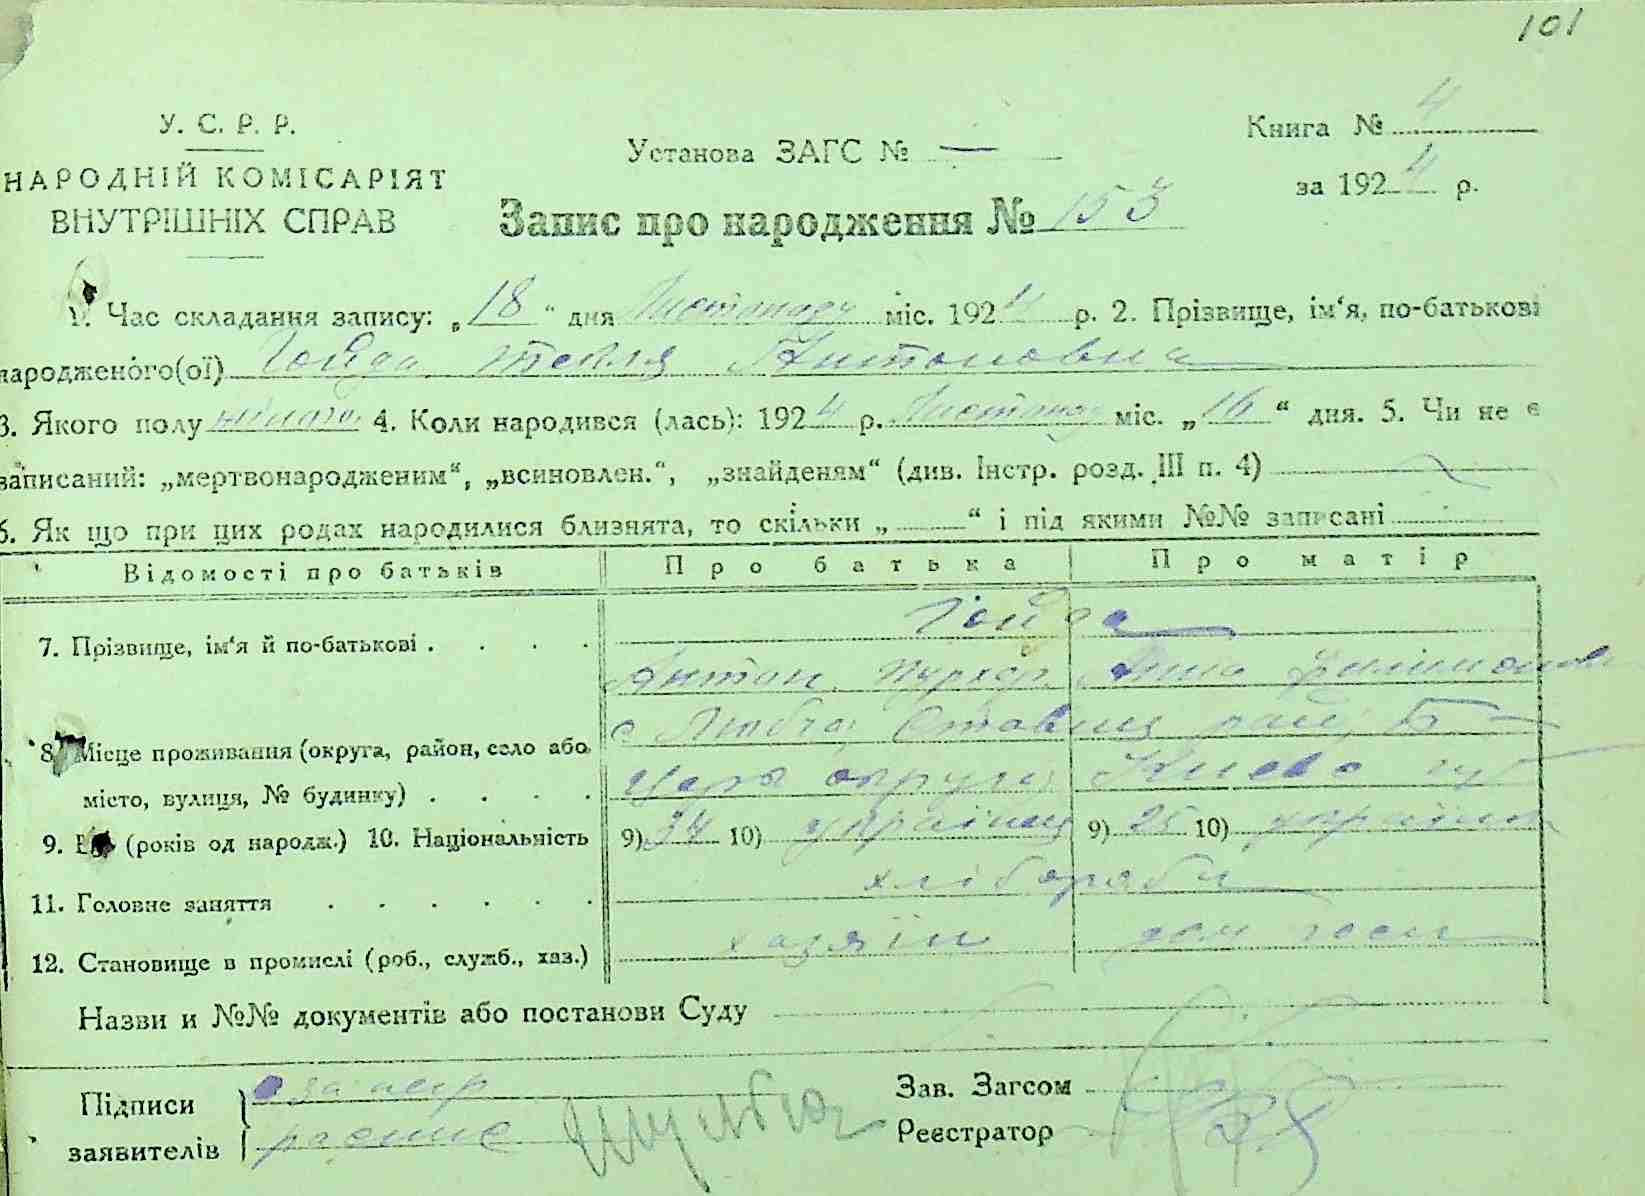 101
У. С. Р. Р.
НАРОДНІЙ КОМІСАРІЯТ
ВНУТРІШНІХ СПРАВ
Установа ЗАГС № —
Книга № 4
за 1924 р.
Запис про народження № 153
1. Час складання запису: „18“ дня Листопаду міс. 1924 р. 2. Прізвище, ім‘я, по-батькові
народженого(ої) Гойда Антоновна
3. Якого полу 4. Коли народився (лась): 1924 р. Листопаду міс. „16“ дня. 5. Чи не є
записаний: „мертвонародженим“, „всиновлен.“, „знайденям“ (див. Інстр. розд. III п. 4)
6. Як що при цих родах народилися близнята, то скільки „ “ і під якими №№ записані
Відомості про батьків Про батька Про матір
7. Прізвище, ім‘я й по-батькові Гойда
Антон Анна
8. Місце проживання (округа, район, село або с Ставищ рай Б
місто, вулиця, № будинку) Церк округи Києва губ
9. Вік (років од народж.) 10. Національність 9) 34 10) українец 9) 25 10) україн
11. Головне заняття хлібороби
12. Становище в промислі (роб., служб., хаз.) хазяїн дом
Назви и №№ документів або постанови Суду
Підписи
заявителів
Зав. Загсом
Реєстратор